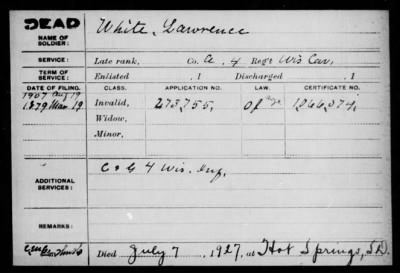 DEAD
NAME OF SOLDIER: White, Lawrence
SERVICE: Late rank, Co. A, 4 Reg't Wis Cav,
TERM OF SERVICE: Enlisted , 1 Discharged , 1
DATE OF FILING. CLASS. APPLICATION NO. LAW. CERTIFICATE NO.
1907 Aug 19
1879 Mar 19 Invalid, 273,755, Of age 1,066,374,
Widow,
Minor,
ADDITIONAL SERVICES: C & G 4 Wis. Inf,
REMARKS:
Died July 7, 1927, at Hot Springs, S.D.